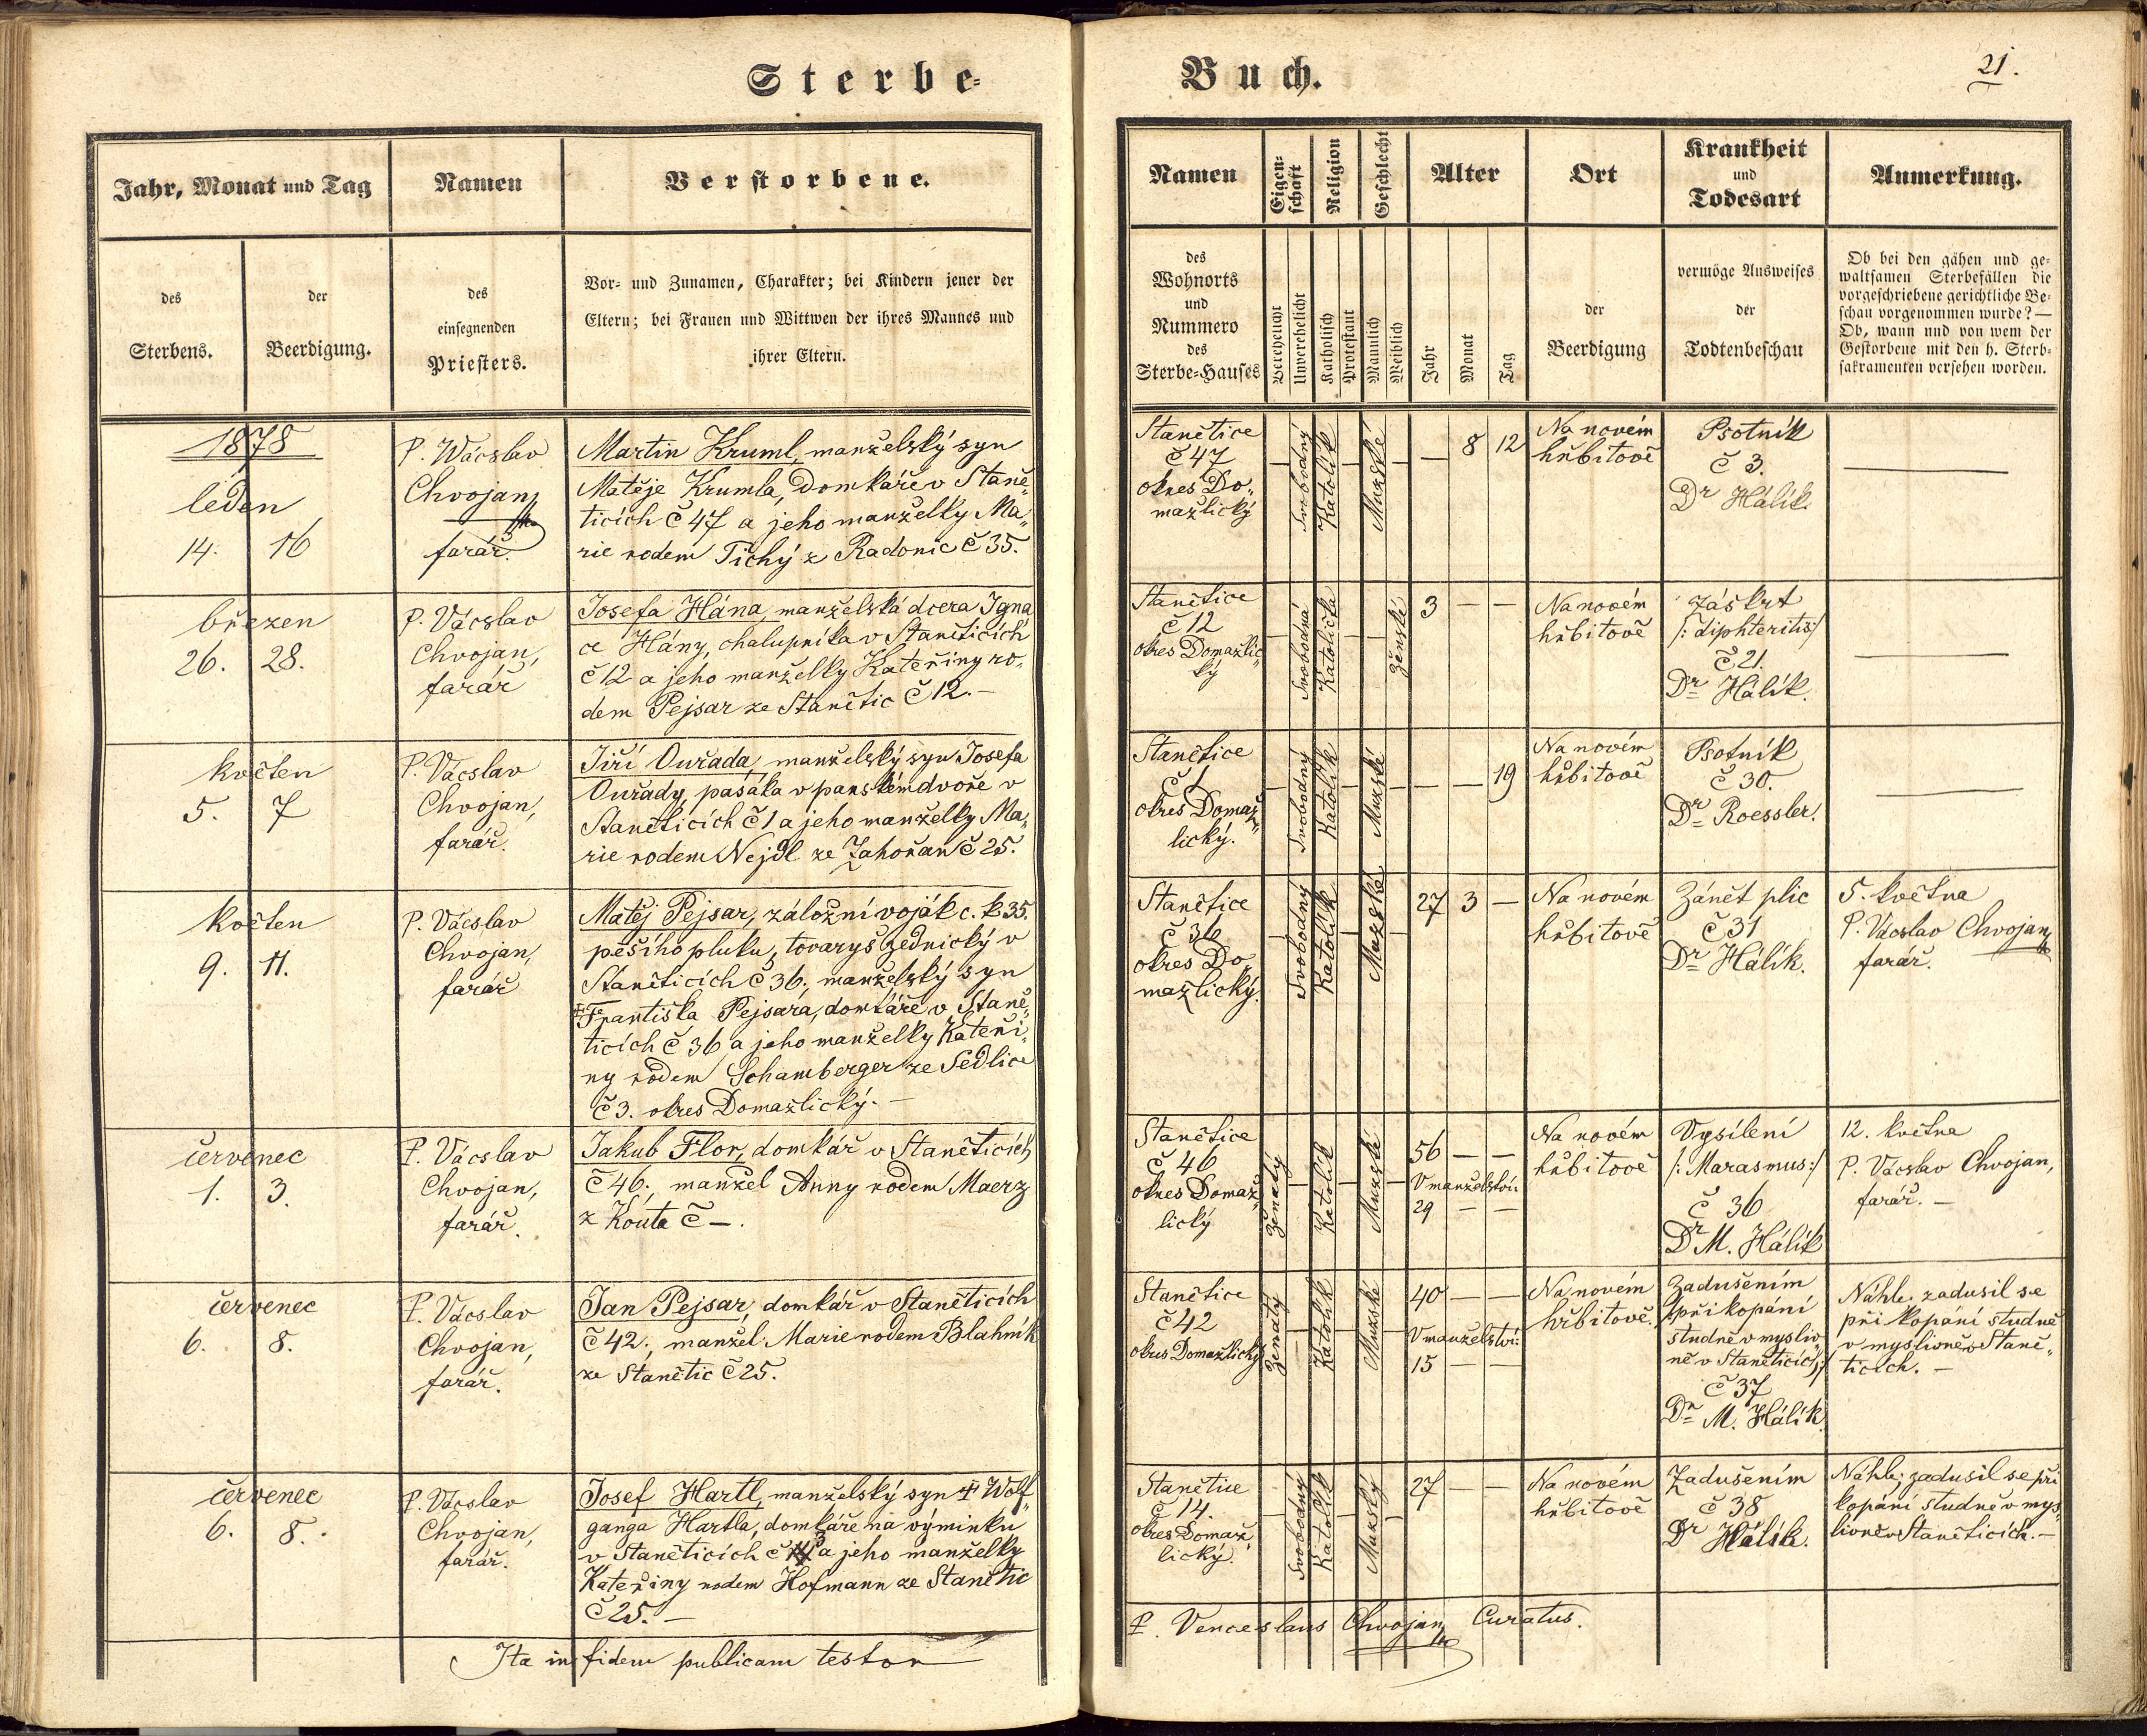 Sterbe-
Buch.
21.
Jahr, Monat und Tag
Namen
Verstorbene.
des
Sterbens.
der
Beerdigung.
des
einsegnenden
Priesters.
Vor- und Zunamen, Charakter; bei Kindern jener der
Eltern; bei Frauen und Wittwen der ihres Mannes und
ihrer Eltern.
Namen
Eigen-
schaft
Religion
Geschlecht
Alter
Ort
Krankheit
und
Todesart
Anmerkung.
des
Wohnorts
und
Nummero
des
Sterbe-Hauses
Verehelicht
Unverehelicht
Katholisch
Protestant
Männlich
Weiblich
Jahr
Monat
Tag
der
Beerdigung
vermöge Ausweises
der
Todtenbeschau
Ob bei den gähen und ge-
waltsamen Sterbefällen die
vorgeschriebene gerichtliche Be-
schau vorgenommen wurde? —
Ob, wann und von wem der
Gestorbene mit den h. Sterb-
sakramenten versehen worden.
1878
leden
14. 16
P. Wácslav
Chvojan,
farář.
Martin Kruml, manželský syn
Matěje Krumla, domkáře v Staně„
ticích č 47 a jeho manželky Ma„
rie rodem Tichý z Radonic č 35.
Stanětice
č 47
okres Do„
mažlický
Svobodný
Katolík
Mužské
— 8 12
Na novém
hřbitově
Psotník
č 3.
Dr Hálík.
—
březen
26. 28.
P. Vácslav
Chvojan,
farář
Josefa Hána, manželská dcera Igná„
ce Hány, chalupníka v Staněticích
č 12 a jeho manželky Kateřiny ro„
dem Pejsar ze Stanětic č 12. —
Stanětice
č 12
okres Domažlic„
ký
Svobodná
Katolička
Ženské
3 — —
Na novém
hřbitově
Záškrt
/: diphteritis:/
č 21.
Dr Hálík.
—
květen
5. 7
P. Vácslav
Chvojan,
farář.
Jiří Ouřada, manželský syn Josefa
Ouřady, pasáka v panském dvoře v
Staněticích č 1 a jeho manželky Ma„
rie rodem Nejdl ze Zahořan č 25.
Stanětice
č 1
okres Domaž„
lický.
Svobodný
Katolík
Mužské
— — 19
Na novém
hřbitově
Psotník
č 30.
Dr Roessler.
—
květen
9. 11.
P. Vácslav
Chvojan,
farář
Matěj Pejsar, záložní voják c. k 35.
pěšího pluku, tovaryš zednický v
Staněticích č 36., manželský syn
Františka Pejsara, domkáře v Staně„
ticích č 36 a jeho manželky Kateři„
ny rodem Schamberger ze Sedlice
č 3. okres Domažlický. —
Stanětice
č 36
okres Do„
mažlický.
Svobodný
Katolík
Mužské
27 3 —
Na novém
hřbitově
Zánět plic
č 31
Dr Hálík.
5. května
P. Vácslav Chvojan,
farář.
červenec
1. 3.
P. Vácslav
Chvojan,
farář.
Jakub Flor, domkář v Staněticích
č 46., manžel Anny rodem Maerz
z Kouta č —.
Stanětice
č 46
okres Domaž„
lický
ženatý
Katolík
Mužské
56 — —
V manželství:
29 — —
Na novém
hřbitově
Vysílení
/: Marasmus:/
č 36
Dr M. Hálík
12. května
P. Vácslav Chvojan,
farář. —
červenec
6. 8.
P. Vácslav
Chvojan,
farář.
Jan Pejsar, domkář v Staněticích
č 42., manžel Marie rodem Blahník
ze Stanětic č 25.
Stanětice
č 42
okres Domažlický
ženatý
Katolík
Mužské
40 — —
V manželství:
15 — —
Na novém
hřbitově.
Zadušením
/: při kopání
studně v mysliv„
ně v Staněticích:/
č 37
Dr M. Hálík
Náhle; zadusil se
při kopání studně
v myslivně v Staně„
ticích. —
červenec
6. 8.
P. Vácslav
Chvojan,
farář.
Josef Hartl, manželský syn † Wolf„
ganga Hartla, domkáře na výminku
v Staněticích č a jeho manželky
Kateřiny rodem Hofmann ze Stanětic
č 25. —
Stanětice
č 14.
okres Domaž„
lický.
Svobodný
Katolík
Mužský
27 — —
Na novém
hřbitově
Zadušením
č 38
Dr Hálík.
Náhle; zadusil se při
kopání studně v mys„
livně v Staněticích. —
Ita in fidem publicam testor
P. Venceslaus Chvojan, Curatus.